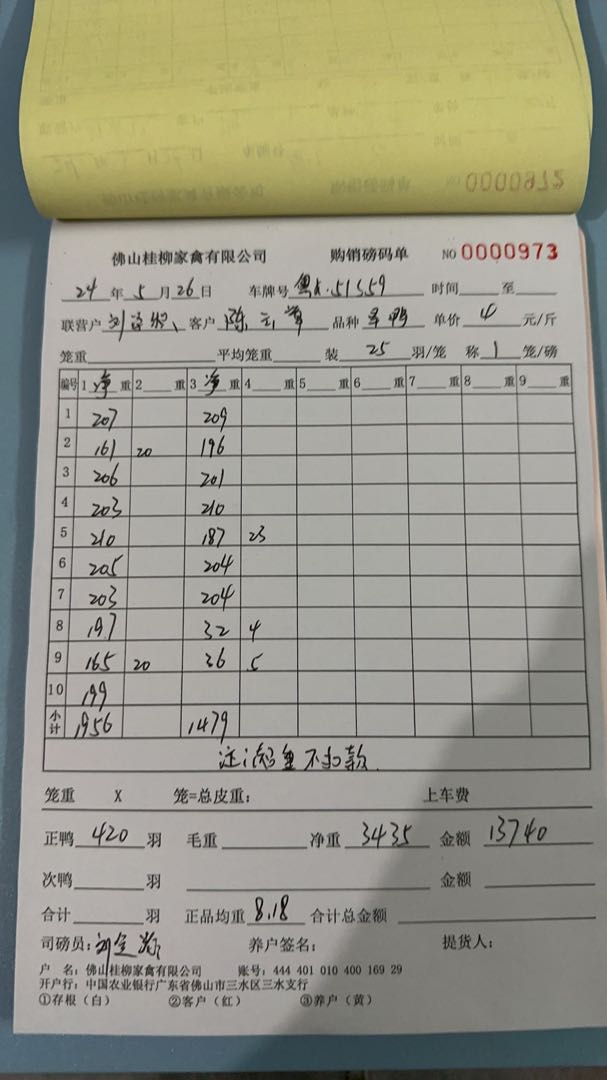 佛山桂柳家禽有限公司 购销磅码单 NO 0000973
24 年 5 月 26 日 车牌号 时间 至
联营户 刘 客户 陈 品种 鸭 单价 4 元/斤
笼重 平均笼重 装 25 羽/笼 称 1 笼/磅
编号 1 净 重 2 重 3 净 重 4 重 5 重 6 重 7 重 8 重 9 重
1 207 209
2 161 20 196
3 206 201
4 203 210
5 210 187 23
6 205 204
7 203 204
8 197 32 4
9 165 20 36 5
10 199
小计 1956 1479
注: 不扣款
笼重 X 笼=总皮重: 上车费
正鸭 420 羽 毛重 净重 3435 金额 13740
次鸭 羽 金额
合计 羽 正品均重 8.18 合计总金额
司磅员: 刘 养户签名: 提货人:
户 名: 佛山桂柳家禽有限公司 账号: 444 401 010 400 169 29
开户行: 中国农业银行广东省佛山市三水区三水支行
①存根(白) ②客户(红) ③养户(黄)